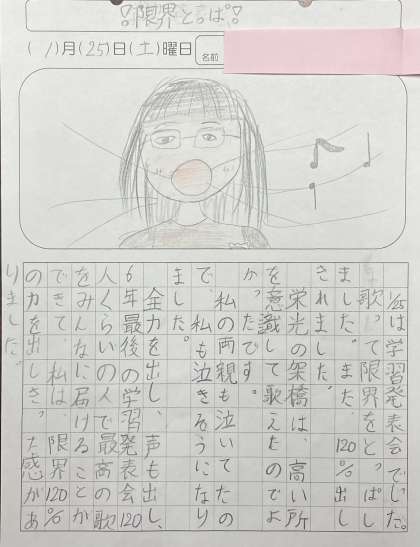 限界とっぱ
(1)月(25)日(土)曜日
名前
1/25は学習発表会でした。
歌って限界をとっぱし
ました。また、120%出し
されました。
栄光の架橋は、高い所
を意識して歌えたのでよ
かったです。
私の両親も泣いてたの
で、私も泣きそうになり
ました。
全力を出し、声も出し、
6年最後の学習発表会120
人くらいの人で最高の歌
をみんなに届けることが
できて、私は、限界120%
の力を出しきった感があ
りました。